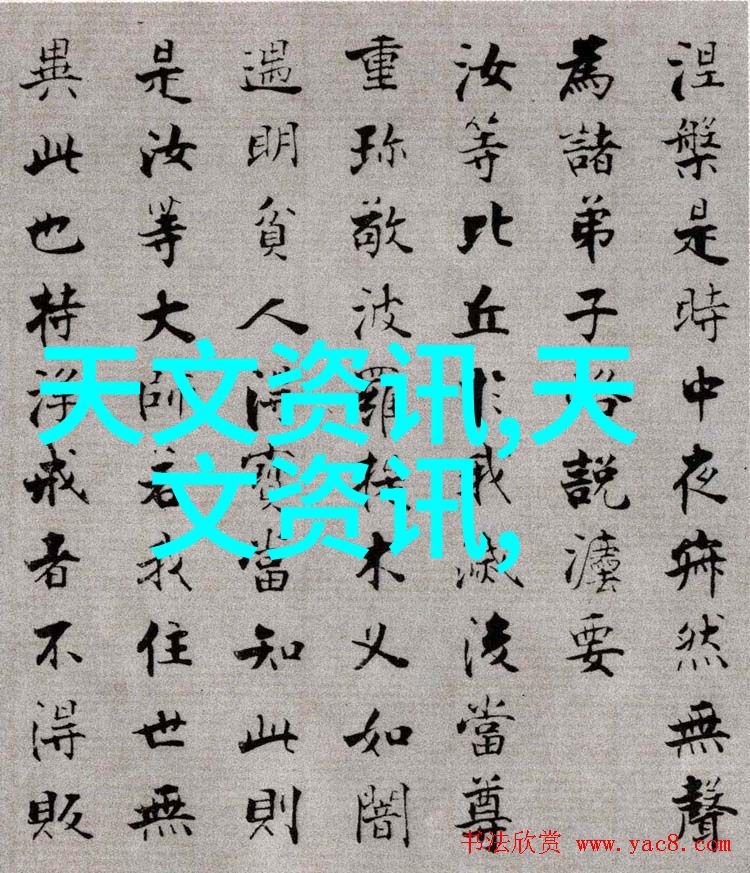 涅槃是時中夜寂然無聲
為諸弟子略說法要
汝等比丘於我滅後當尊
重珍敬波羅提木叉如闇
遇明貧人得寶當知此則
是汝等大師若我住世無
異此也持淨戒者不得販
天文资讯,天
文资讯,
书法欣赏 www.yac8.com